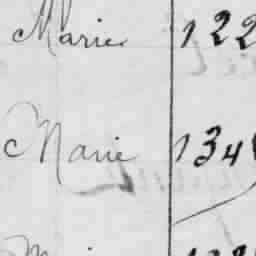 Marie 122
Marie 134